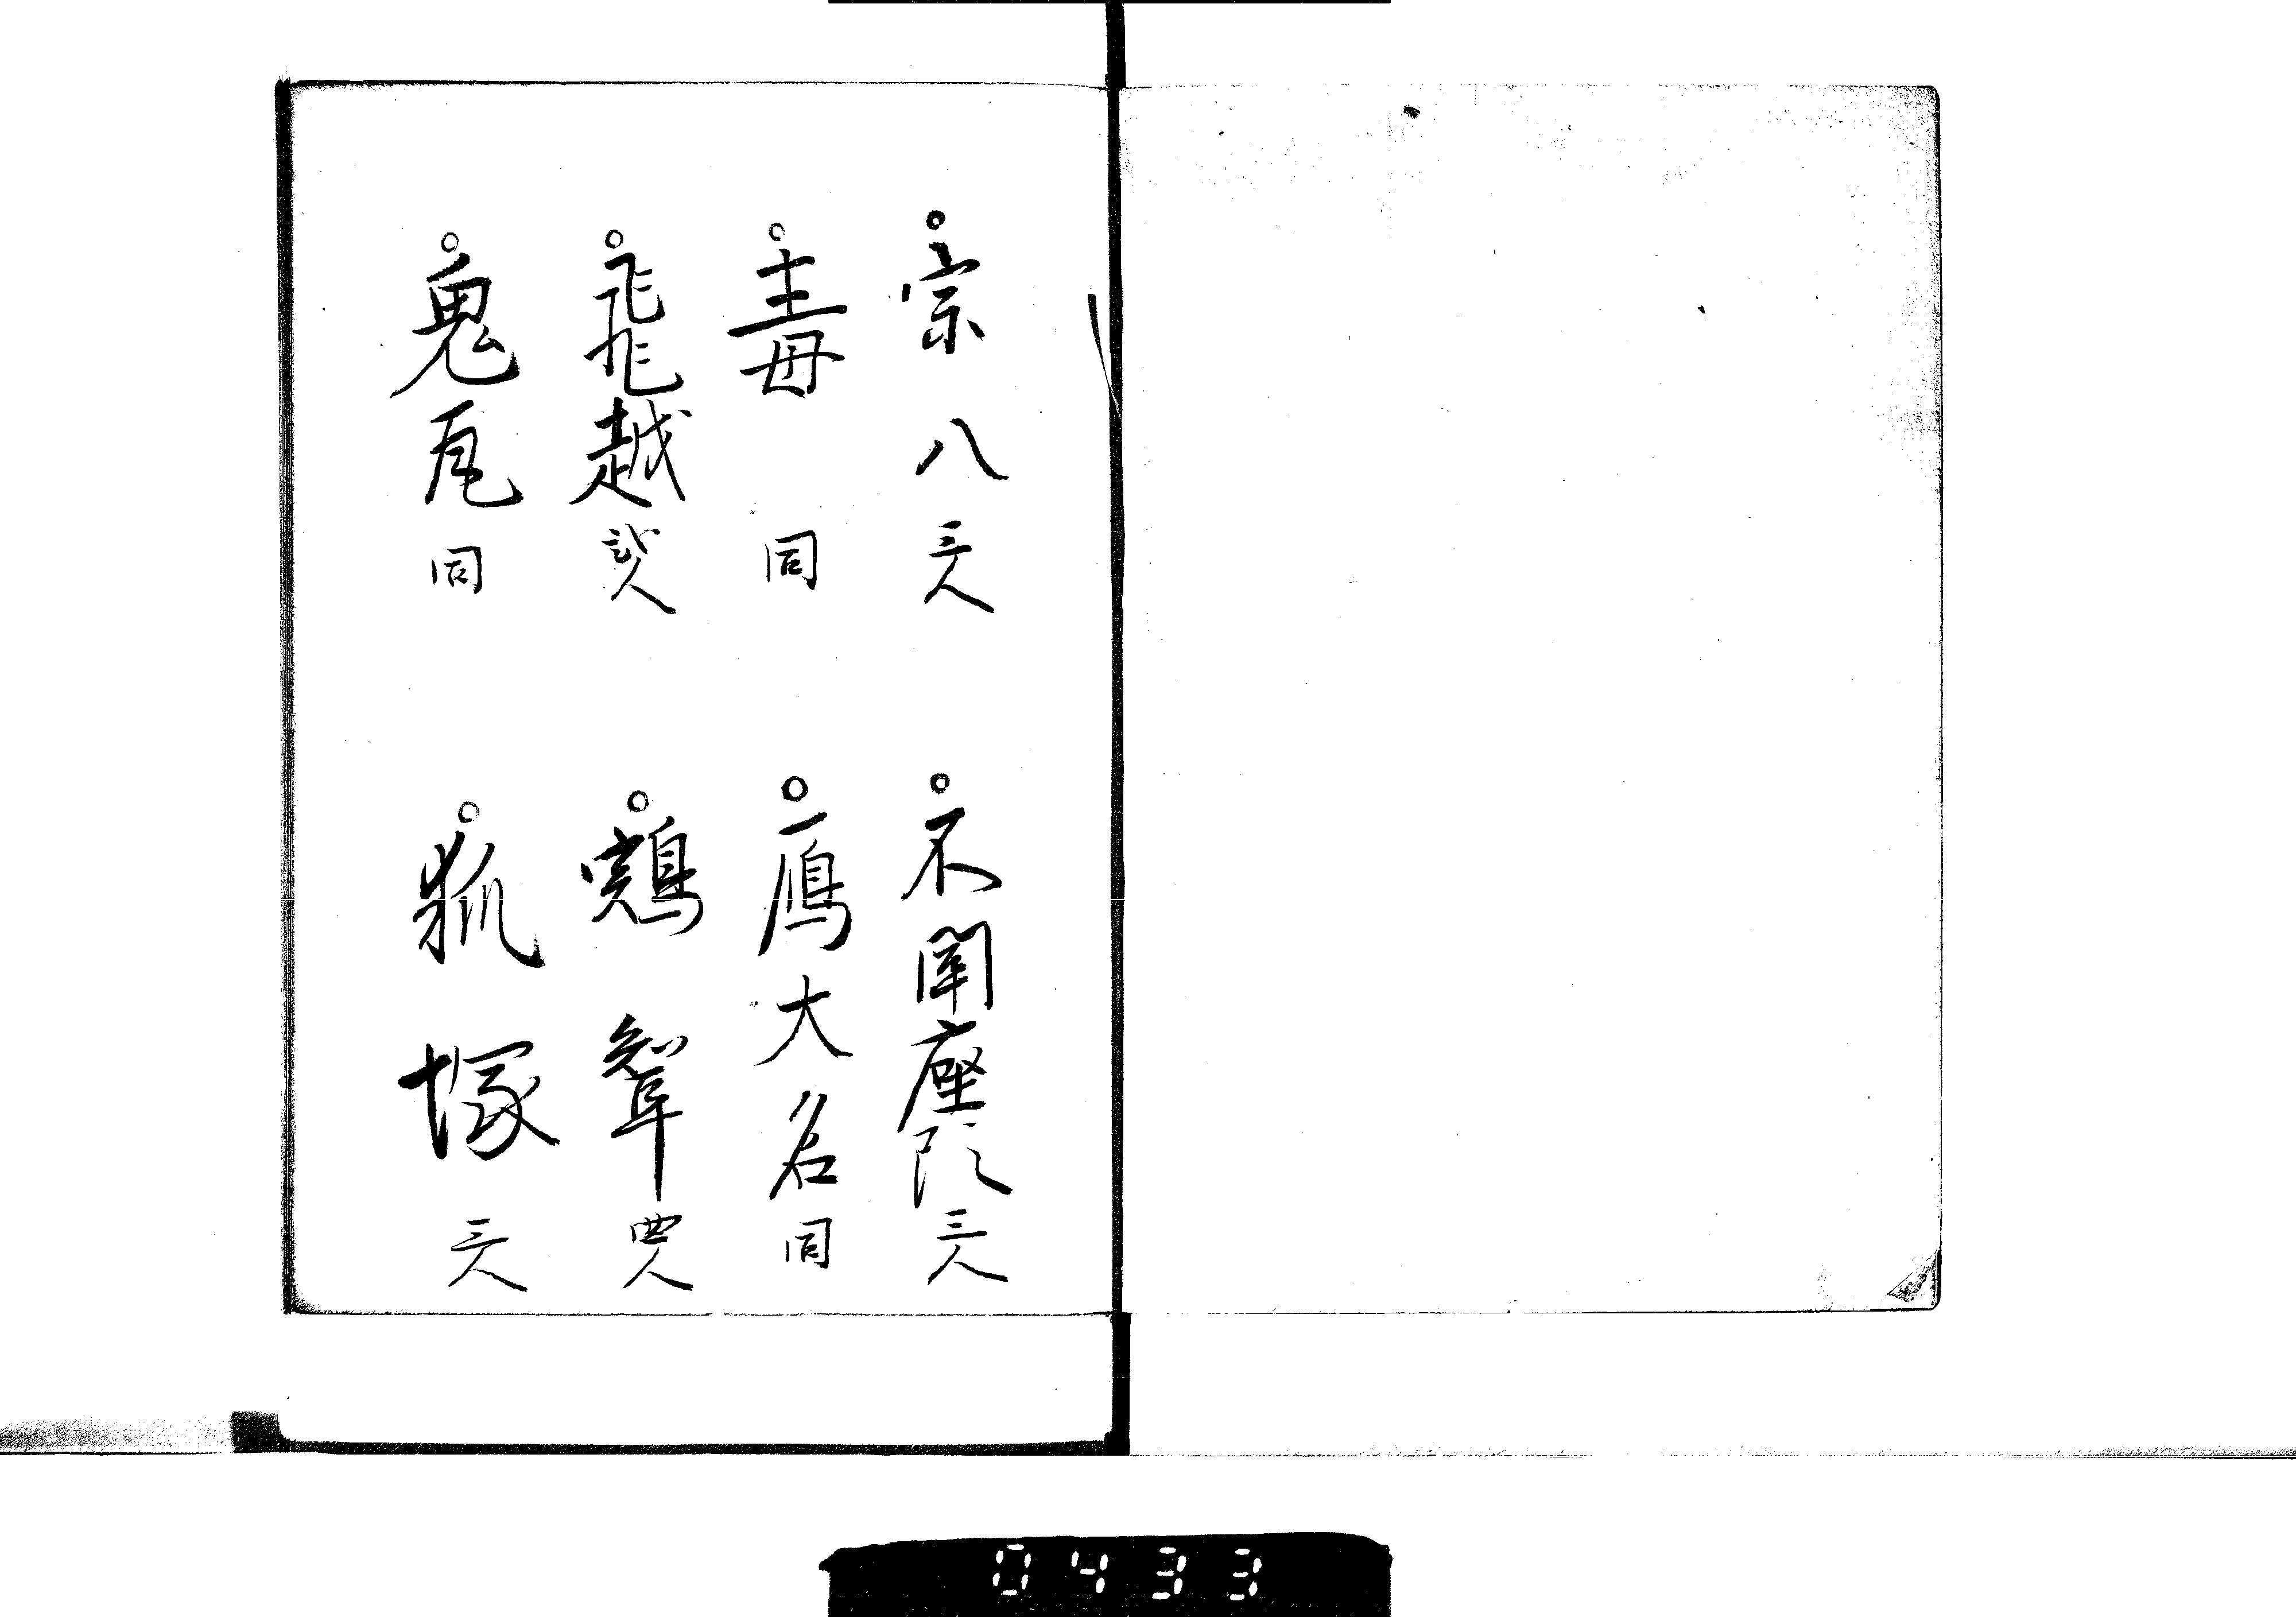 ○宗八 三人 ○不聞座頭 三人
○毒 同 ○鴈大名 同
○飛越 弐人 ○鶏聟 四人
○鬼瓦 同 ○狐塚 三人
0433